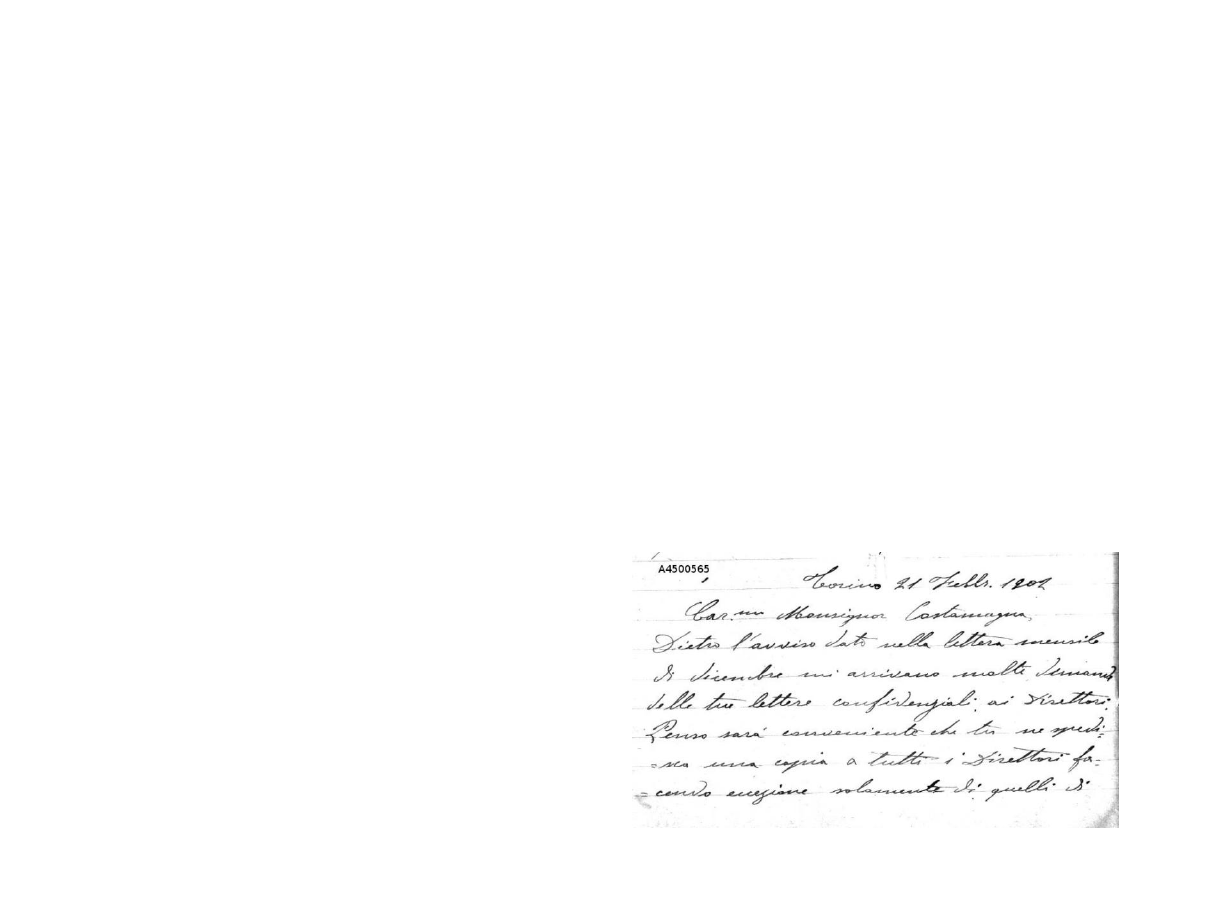 A4500565
Torino 21 Febbr. 1902
Car.mo Monsignor Costamagna,
Dietro l'avviso dato nella lettera mensile
di dicembre mi arrivano molte domande
delle tue lettere confidenziali ai Direttori.
Penso sarà conveniente che tu ne spedi=
=sca una copia a tutti i Direttori fa-
=cendo eccezione solamente di quelli di